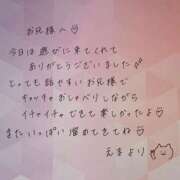 お兄様へ♡
今日は遊びに来てくれて
ありがとうございました
とっても話やすいお兄様で
キャッキャおしゃべりしながら
イチャイチャできて楽しかったよ♡
またいっぱい溜めてきてね♡
えまより